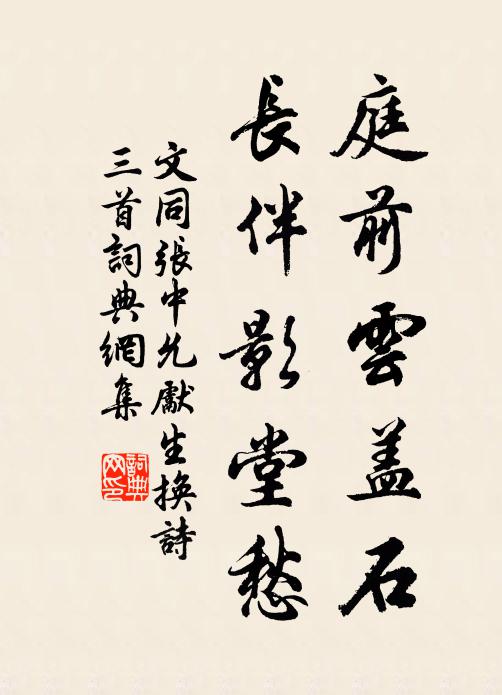 庭前雲蓋石
長伴影堂愁
文同張中允獻生換詩
三首詞典網集
詞典網印